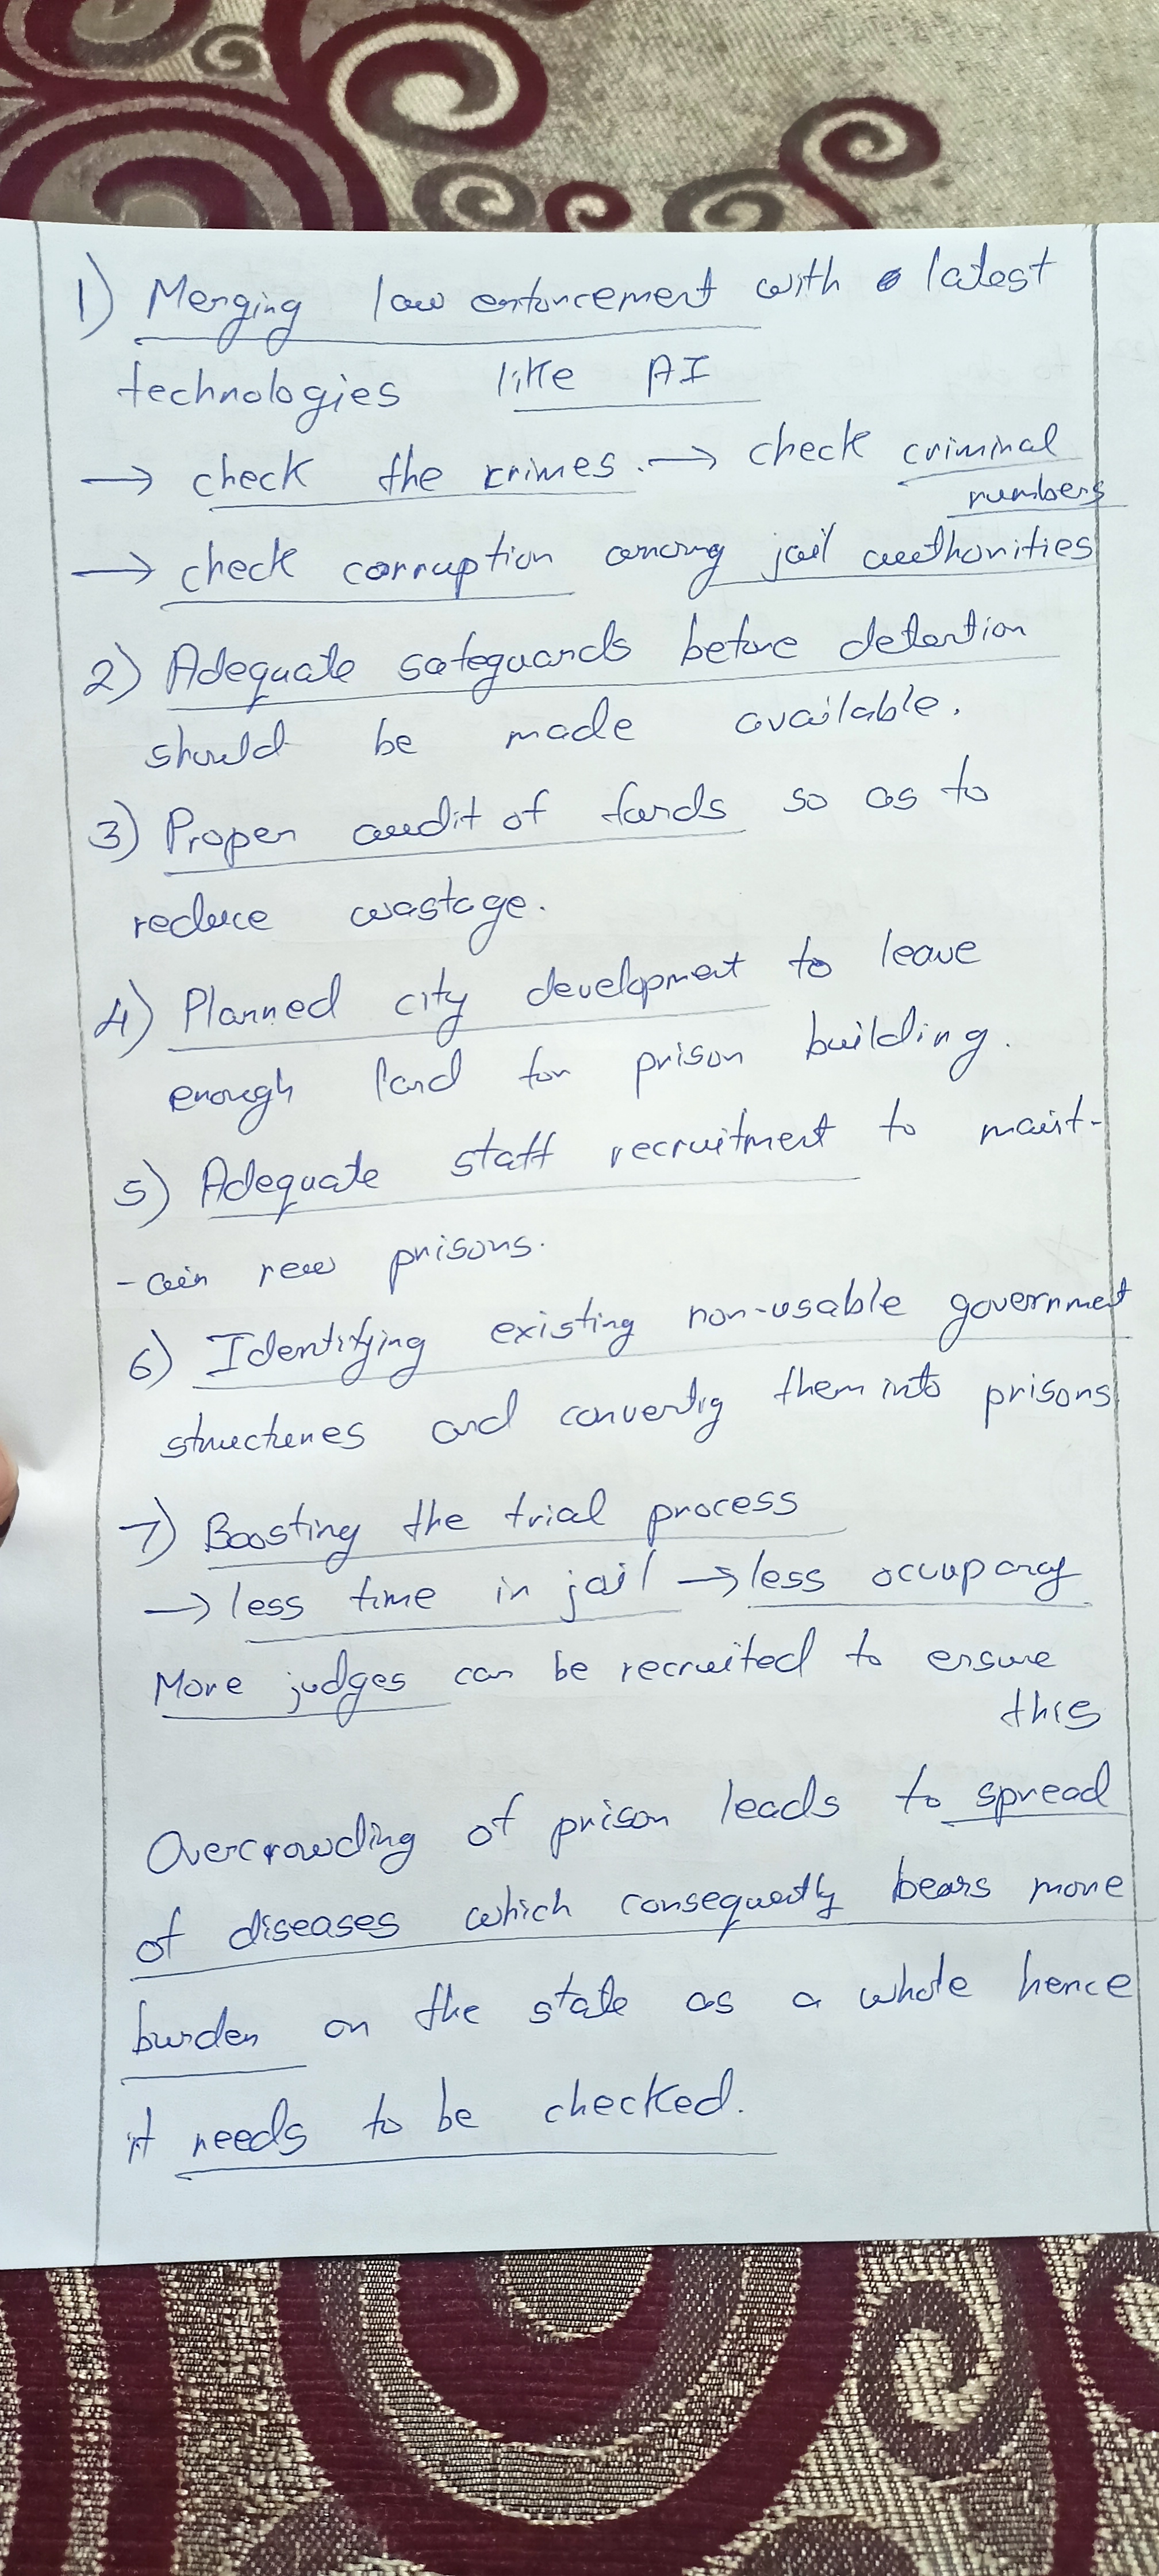 1) Merging law enforcement with latest
technologies like AI
→ check the crimes. → check criminal
numbers
→ check corruption among jail authorities
2) Adequate safeguards before detention
should be made available.
3) Proper audit of funds so as to
reduce wastage.
4) Planned city development to leave
enough land for prison building.
5) Adequate staff recruitment to maint-
-ain new prisons.
6) Identifying existing non-usable government
structures and converting them into prisons
7) Boosting the trial process
→ less time in jail → less occupancy
More judges can be recruited to ensure
this
Overcrowding of prison leads to spread
of diseases which consequently bears more
burden on the state as a whole hence
it needs to be checked.